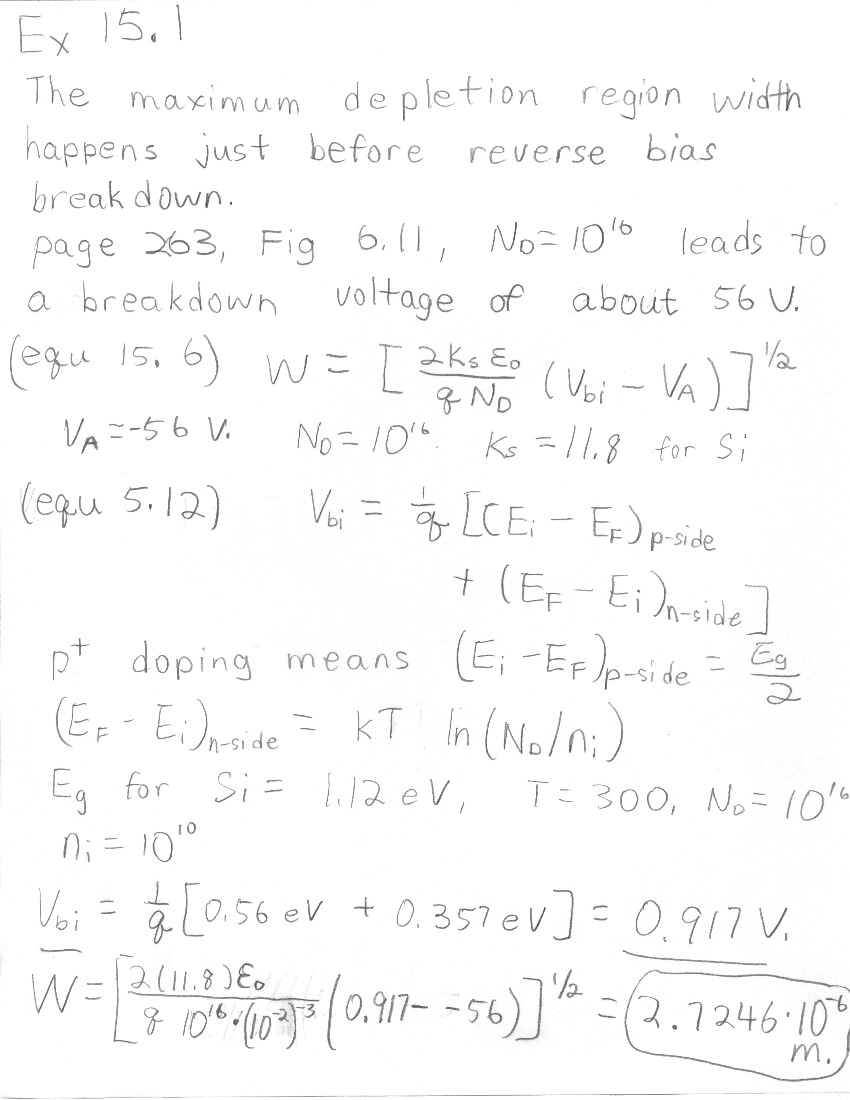 Ex 15.1
The maximum depletion region width
happens just before reverse bias
breakdown.
page 263, Fig 6.11, N_D = 10^16 leads to
a breakdown voltage of about 56 V.
(equ 15.6) W = [ 2K_s ε_0 / q N_D (V_bi − V_A) ]^1/2
V_A = -56 V. N_D = 10^16. K_s = 11.8 for Si
(equ 5.12) V_bi = 1/q [(E_i − E_F)_p-side
+ (E_F − E_i)_n-side]
p^+ doping means (E_i − E_F)_p-side = E_g/2
(E_F − E_i)_n-side = kT ln(N_D/n_i)
E_g for Si = 1.12 eV, T = 300, N_D = 10^16
n_i = 10^10
V_bi = 1/q [0.56 eV + 0.357 eV] = 0.917 V.
W = [ 2(11.8)ε_0 / q 10^16·(10^-2)^-3 (0.917 - -56) ]^1/2 = 2.7246·10^-6 m.